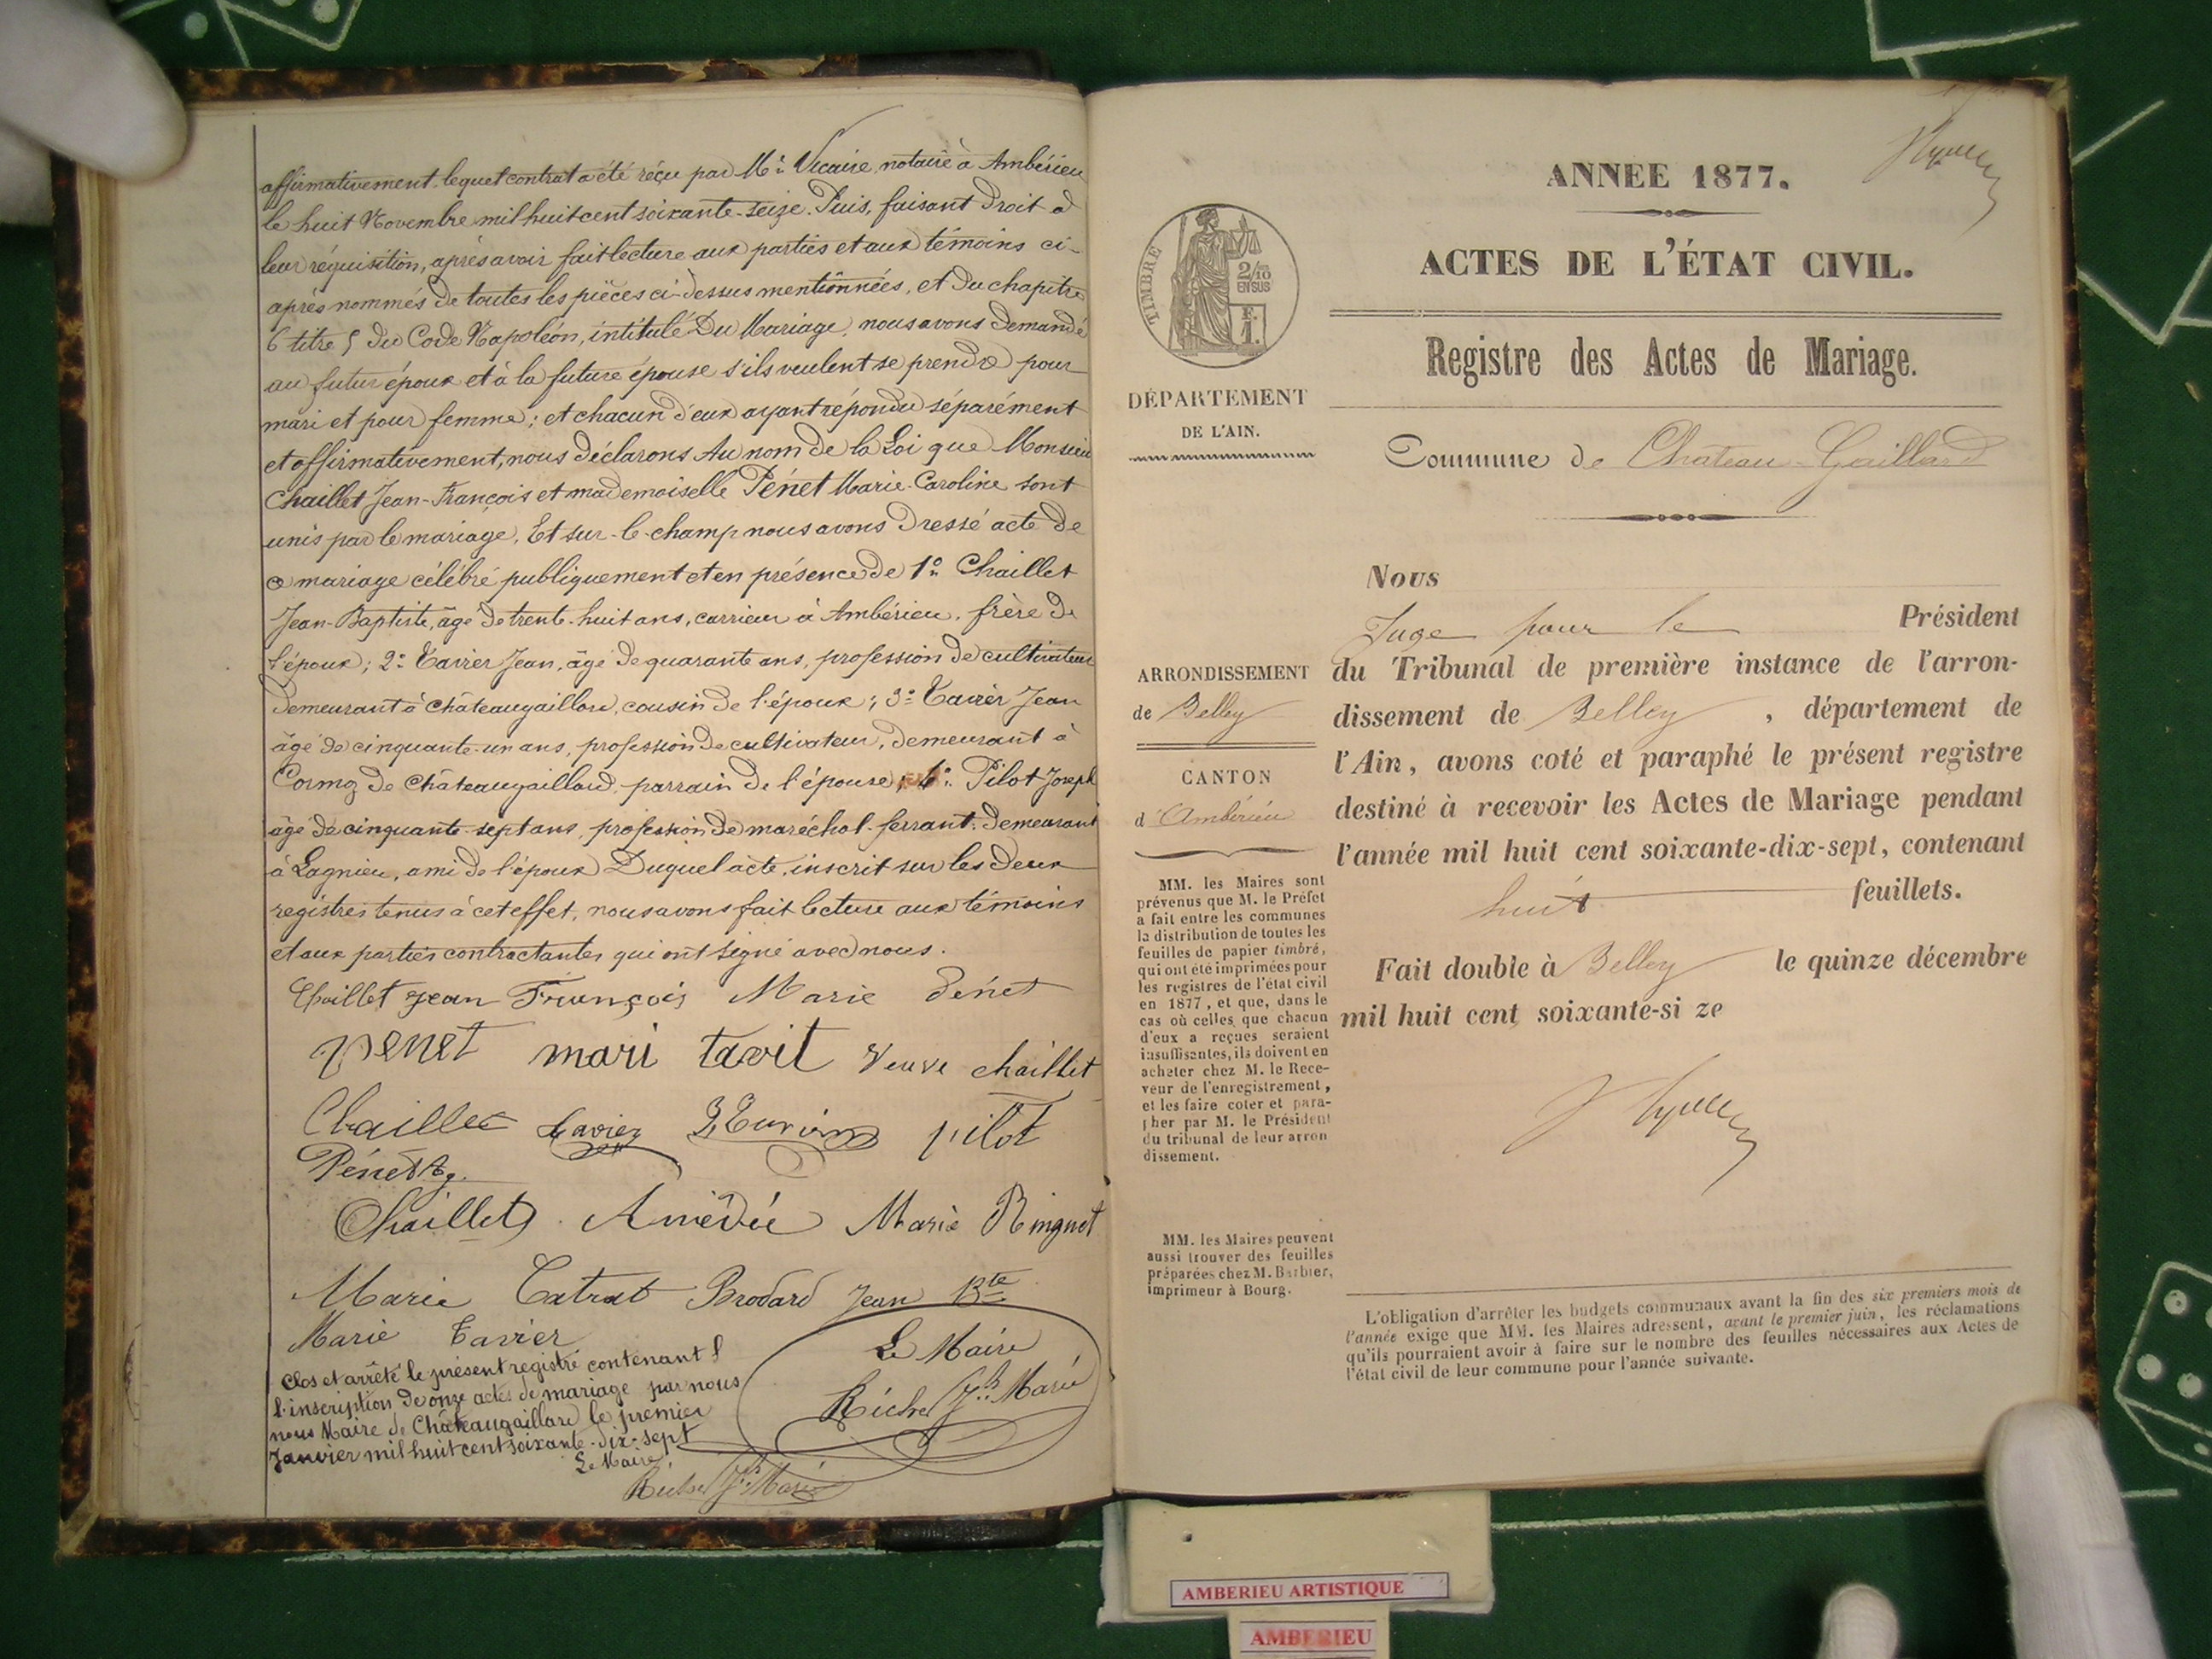 affirmativement, lequel contrat a été réçu par Me Vicaire, notaire à Ambérieu
le huit Novembre mil huit cent soixante-seize. Puis, faisant droit à
leur réquisition, après avoir fait lecture aux parties et aux témoins ci-
après nommés de toutes les pièces ci-dessus mentionnées, et du chapitre
6 titre 5 du Code Napoléon, intitulé Du Mariage, nous avons demandé
au futur époux et à la future épouse s'ils veulent se prendre pour
mari et pour femme; et chacun d'eux ayant répondu séparément
et affirmativement, nous déclarons Au nom de la Loi que Monsieur
Chaillet Jean-François et mademoiselle Pénet Marie-Caroline sont
unis par le mariage. Et sur-le-champ nous avons dressé acte de
ce mariage célébré publiquement et en présence de 1° Chaillet
Jean-Baptiste, âgé de trente-huit ans, carrier à Ambérieu, frère de
l'époux; 2° Tavier Jean, âgé de quarante ans, profession de cultivateur
demeurant à Châteaugaillard, cousin de l'époux; 3° Tavier Jean
âgé de cinquante-un ans, profession de cultivateur, demeurant à
Cormoz de Châteaugaillard, parrain de l'épouse; 4° Pilot Joseph
âgé de cinquante-sept ans, profession de maréchal-ferrant, demeurant
à Lagnieu, ami de l'époux Duquel acte, inscrit sur les deux
registres tenus à cet effet, nous avons fait lecture aux témoins
et aux parties contractantes qui ont signé avec nous.
Chaillet Jean François Marie Pénet
penet mari tavit Veuve chaillet
Chaillet tavier pilot
Pénet
Chaillet Amédée Marie Ringuet
Marie Catrat Brodard Jean Bte
Marie Tavier
Le Maire
Clos et arrêté le présent registre contenant l
l'inscription de onze actes de mariage par nous
nous Maire de Châteaugaillard le premier
Janvier mil huit cent soixante-dix-sept
Le Maire
ANNEE 1877.
ACTES DE L'ÉTAT CIVIL.
Registre des Actes de Mariage.
Commune de Château-Gaillard
TIMBRE
2/10
EN SUS
F.
1.
DÉPARTEMENT
DE L'AIN.
ARRONDISSEMENT
de Belley
CANTON
d'Ambérieu
MM. les Maires sont
prévenus que M. le Préfet
a fait entre les communes
la distribution de toutes les
feuilles de papier timbré,
qui ont été imprimées pour
les registres de l'état civil
en 1877, et que, dans le
cas où celles que chacun
d'eux a reçues seraient
insuffisantes, ils doivent en
acheter chez M. le Rece-
veur de l'enregistrement,
et les faire coter et para-
pher par M. le Président
du tribunal de leur arron
dissement.
MM. les Maires peuvent
aussi trouver des feuilles
préparées chez M. Barbier,
imprimeur à Bourg.
Nous
Juge pour le Président
du Tribunal de première instance de l'arron-
dissement de Belley, département de
l'Ain, avons coté et paraphé le présent registre
destiné à recevoir les Actes de Mariage pendant
l'année mil huit cent soixante-dix-sept, contenant
huit feuillets.
Fait double à Belley le quinze décembre
mil huit cent soixante-si ze
L'obligation d'arrêter les budgets communaux avant la fin des six premiers mois de
l'année exige que MM. les Maires adressent, avant le premier juin, les réclamations
qu'ils pourraient avoir à faire sur le nombre des feuilles nécessaires aux Actes de
l'état civil de leur commune pour l'année suivante.
AMBERIEU ARTISTIQUE
AMBERIEU